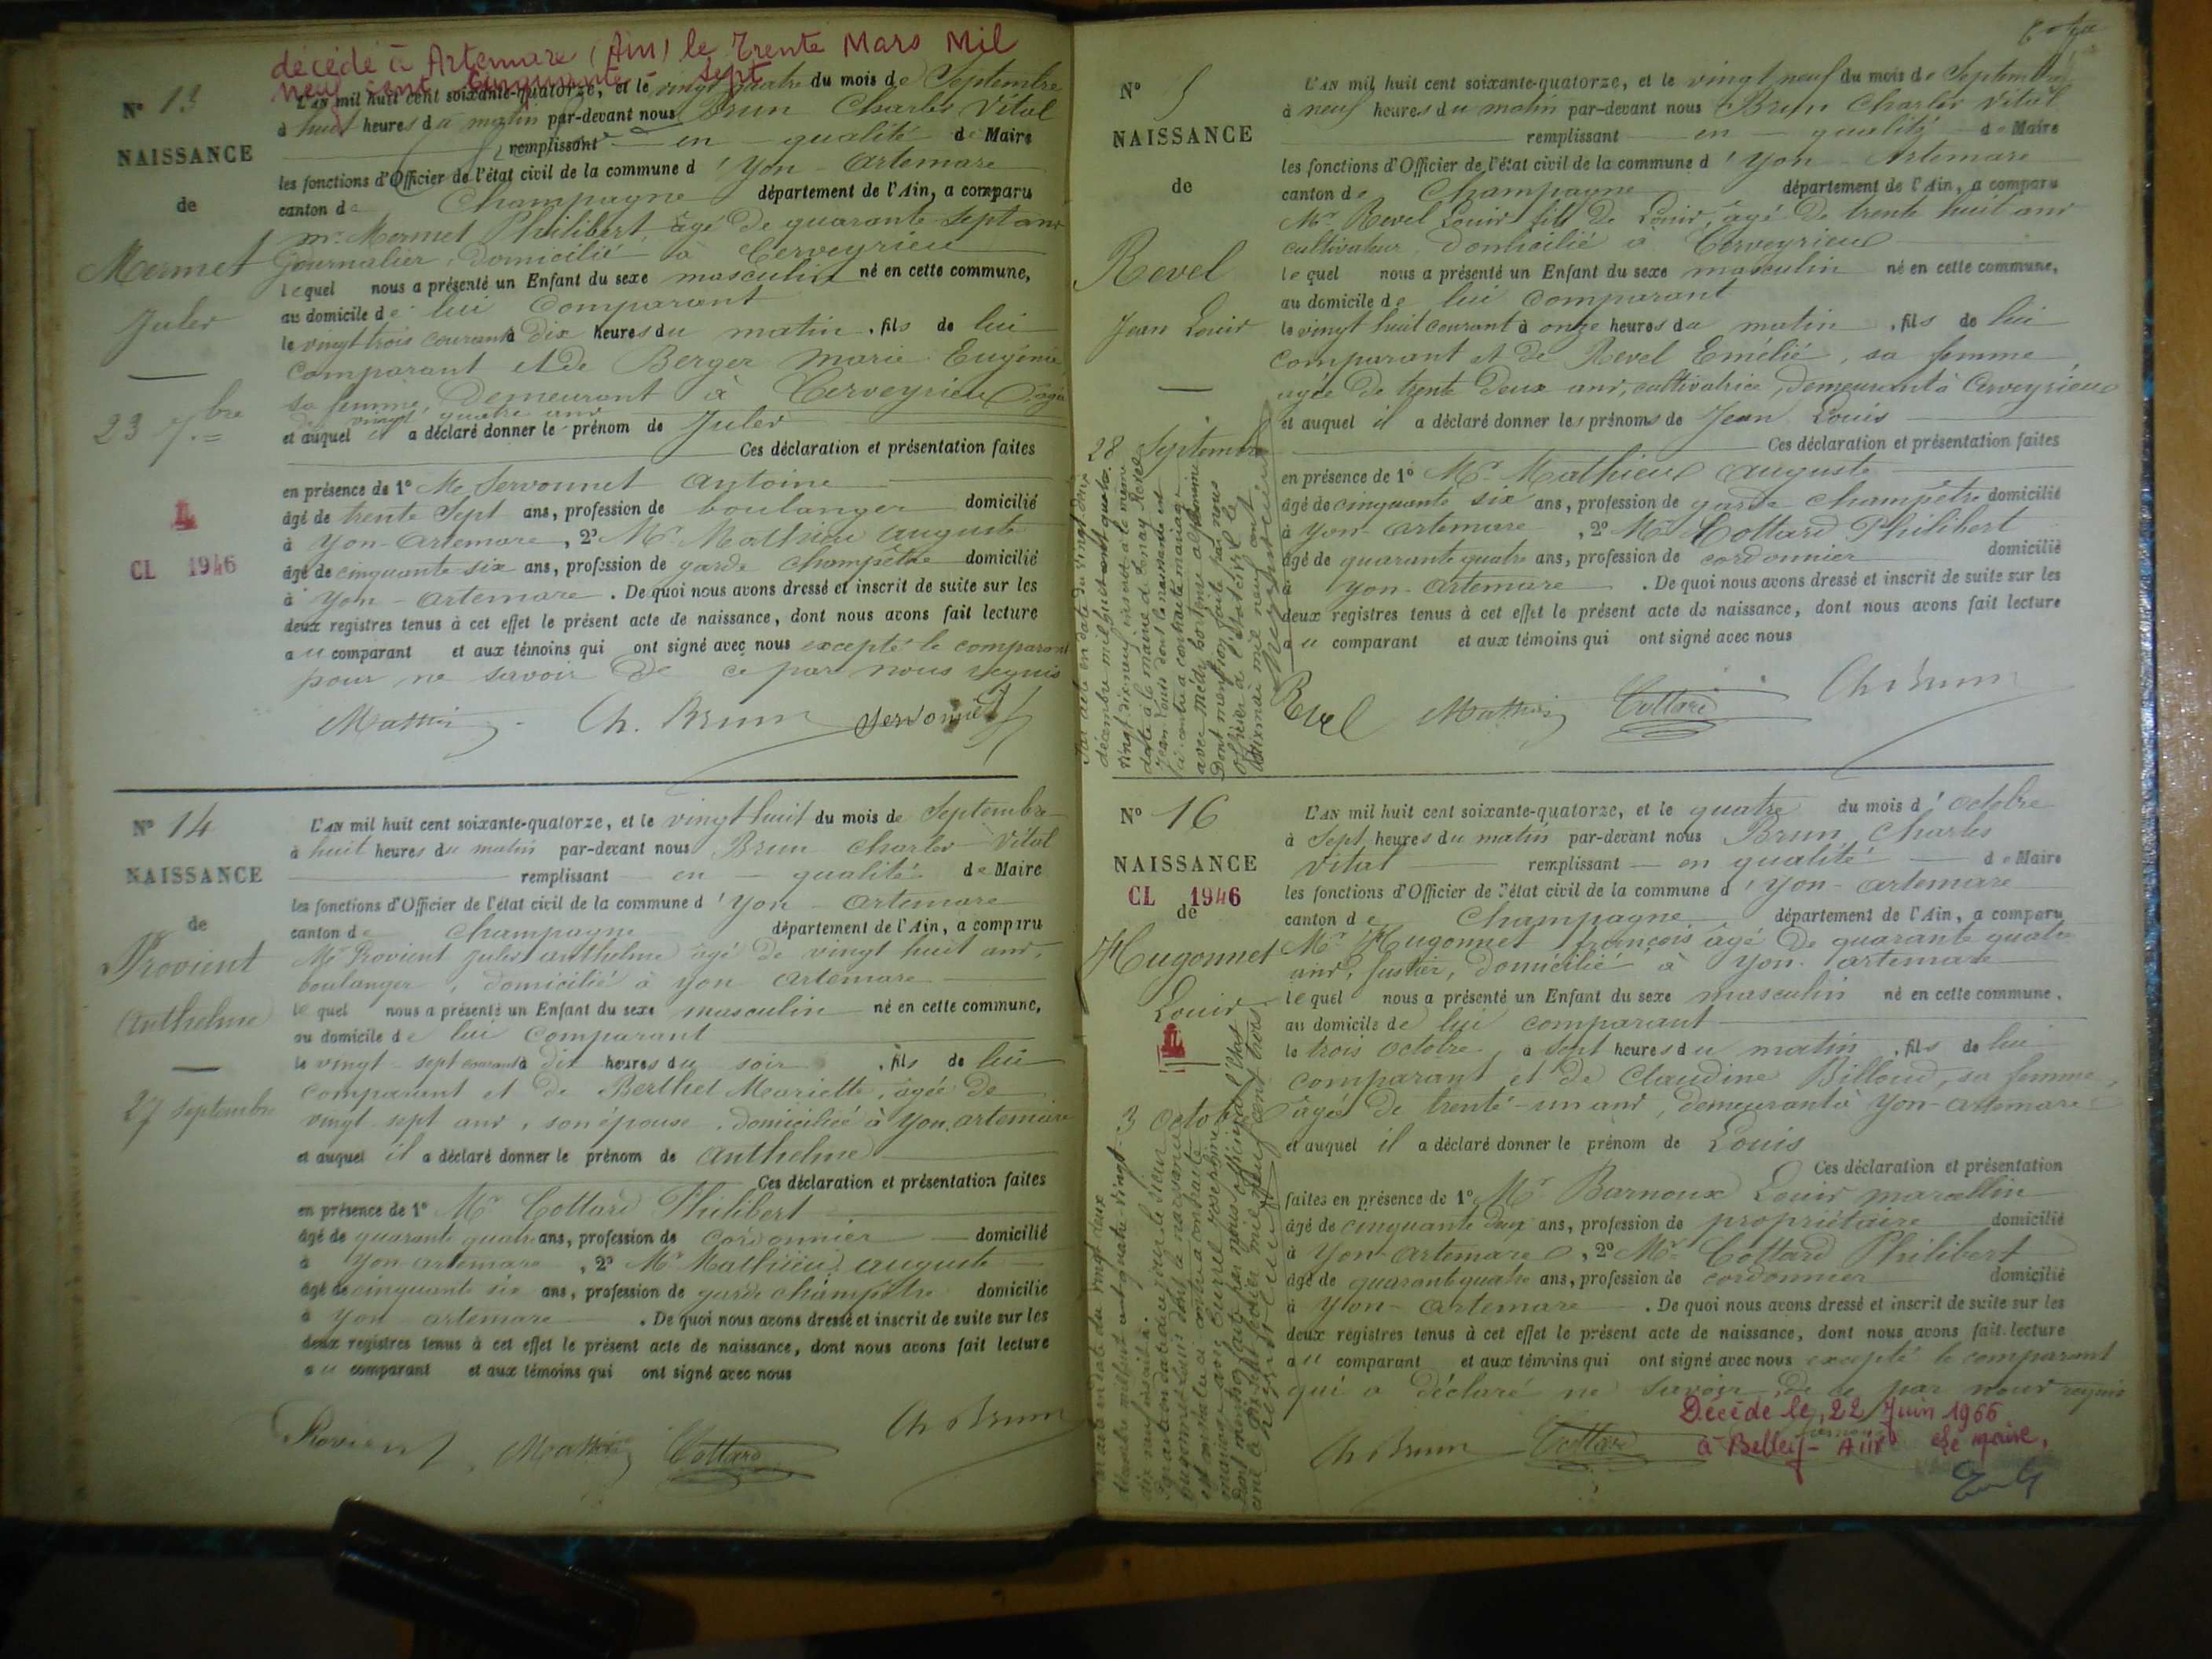 décédé à Artemare (Ain) le trente Mars Mil
neuf cent cinquante-sept
N° 13
NAISSANCE
de
Mermet
Jules
23 7.bre
L
CL 1946
L'AN mil huit cent soixante-quatorze, et le vingt quatre du mois de Septembre
à huit heures du matin par-devant nous Brun Charles Vital
remplissant en qualité de Maire
les fonctions d'Officier de l'état civil de la commune d'Yon-Artemare
canton de Champagne département de l'Ain, a comparu
Mr. Mermet Philibert, âgé de quarante sept ans
journalier, domicilié à Cerveyrieu
lequel nous a présenté un Enfant du sexe masculin né en cette commune,
au domicile de lui comparant
le vingt trois courant à dix heures du matin, fils de lui
comparant et de Berger Marie Eugénie
sa femme, demeurant à Cerveyrieu âgée
de vingt quatre ans
et auquel il a déclaré donner le prénom de Jules
Ces déclaration et présentation faites
en présence de 1° Mr Servonnet Antoine
âgé de trente sept ans, profession de boulanger domicilié
à Yon-Artemare, 2° Mr Mathieu Auguste
âgé de cinquante six ans, profession de garde champêtre domicilié
à Yon-Artemare. De quoi nous avons dressé et inscrit de suite sur les
deux registres tenus à cet effet le présent acte de naissance, dont nous avons fait lecture
au comparant et aux témoins qui ont signé avec nous excepté le comparant
pour ne savoir de ce par nous requis
Mathieu Ch. Brun Servonnet
N° 14
NAISSANCE
de
Provient
Anthelme
27 septembre
L'AN mil huit cent soixante-quatorze, et le vingt huit du mois de Septembre
à huit heures du matin par-devant nous Brun Charles Vital
remplissant en qualité de Maire
les fonctions d'Officier de l'état civil de la commune d'Yon-Artemare
canton de Champagne département de l'Ain, a comparu
Mr Provient Jules Anthelme âgé de vingt huit ans,
boulanger, domicilié à Yon Artemare
lequel nous a présenté un Enfant du sexe masculin né en cette commune,
au domicile de lui comparant
le vingt-sept courant à dix heures du soir, fils de lui
comparant et de Berthet Mariette, âgée de
vingt sept ans, son épouse, domiciliée à Yon, artemare
et auquel il a déclaré donner le prénom de Anthelme
Ces déclaration et présentation faites
en présence de 1° Mr Cottard Philibert
âgé de quarante quatre ans, profession de cordonnier domicilié
à Yon artemare, 2° Mr Mathieu auguste
âgé de cinquante six ans, profession de garde champêtre domicilié
à Yon artemare. De quoi nous avons dressé et inscrit de suite sur les
deux registres tenus à cet effet le présent acte de naissance, dont nous avons fait lecture
au comparant et aux témoins qui ont signé avec nous
Provient Mathieu Cottard Ch Brun
N° 5
NAISSANCE
de
Revel
Jean Louis
28 Septembre
L'AN mil huit cent soixante-quatorze, et le vingt neuf du mois de Septembre
à neuf heures du matin par-devant nous Brun Charles Vital
remplissant en qualité de Maire
les fonctions d'Officier de l'état civil de la commune d'Yon-Artemare
canton de Champagne département de l'Ain, a comparu
Mr Revel Louis fils de Louis, âgé de trente huit ans
cultivateur domicilié à Cerveyrieu
lequel nous a présenté un Enfant du sexe masculin né en cette commune,
au domicile de lui comparant
le vingt huit courant à onze heures du matin, fils de lui
comparant et de Revel Emélié, sa femme,
agée de trente deux ans, cultivatrice, demeurant à Cerveyrieu
et auquel il a déclaré donner les prénoms de Jean Louis
Ces déclaration et présentation faites
en présence de 1° Mr Mathieu Auguste
âgé de cinquante six ans, profession de garde champêtre domicilié
à Yon-artemare, 2° Mr Cottard Philibert
âgé de quarante quatre ans, profession de cordonnier domicilié
à Yon-Artemare. De quoi nous avons dressé et inscrit de suite sur les
deux registres tenus à cet effet le présent acte de naissance, dont nous avons fait lecture
au comparant et aux témoins qui ont signé avec nous
Revel Mathieu Cottard Ch Brun
N° 16
NAISSANCE
CL 1946
de
Hugonnet
Louis
L
3 Octobre
L'AN mil huit cent soixante-quatorze, et le quatre du mois d'Octobre
à Sept heures du matin par-devant nous Brun Charles
Vital remplissant en qualité de Maire
les fonctions d'Officier de l'état civil de la commune d'Yon-Artemare
canton de Champagne, département de l'Ain, a comparu
Mr Hugonnet françois âgé de quarante quatre
ans, fustier, domicilié à Yon-Artemare
lequel nous a présenté un Enfant du sexe masculin né en cette commune.
au domicile de lui comparant
le trois Octobre, à sept heures du matin, fils de lui
comparant et de Claudine Billoud, sa femme,
âgée de trente-un ans, demeurant à Yon-Artemare
et auquel il a déclaré donner le prénom de Louis
Ces déclaration et présentation
faites en présence de 1° Mr Barnoux Louis marcellin
âgé de cinquante deux ans, profession de propriétaire domicilié
à Yon-Artemare, 2° Mr Cottard Philibert
âgé de quarante quatre ans, profession de cordonnier domicilié
à Yon-Artemare. De quoi nous avons dressé et inscrit de suite sur les
deux registres tenus à cet effet le présent acte de naissance, dont nous avons fait lecture
au comparant et aux témoins qui ont signé avec nous excepté le comparant
qui a déclaré ne savoir de ce par nous requis
Ch Brun Cottard
Décédé le, 22 Juin 1966
à Belley - Ain Le maire,